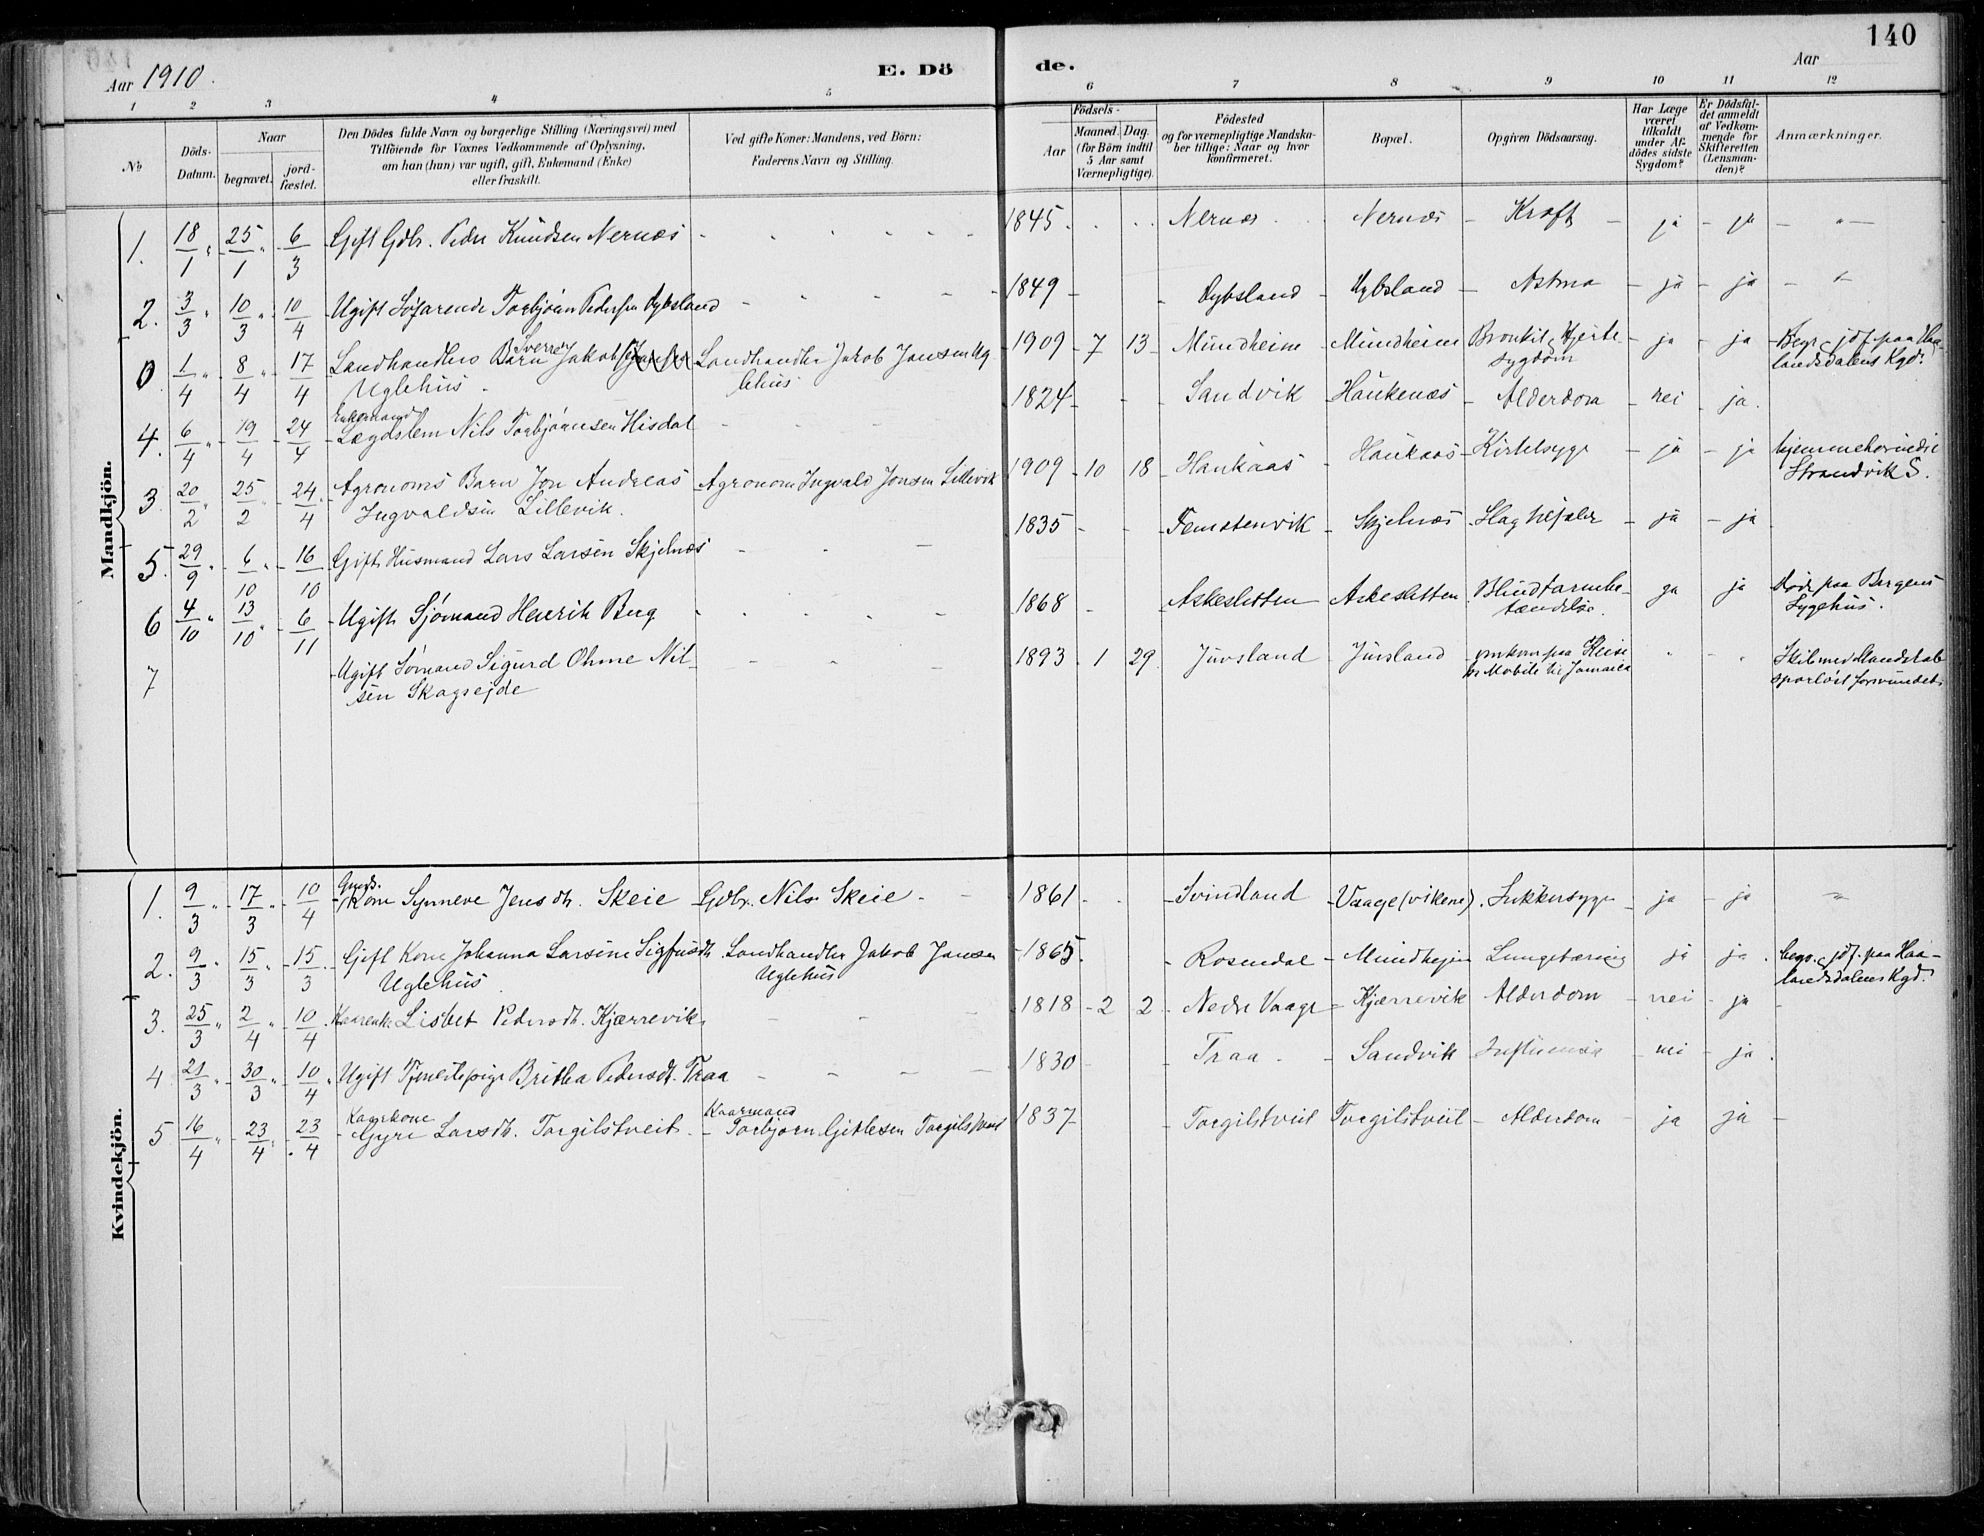 140
Aar 1910.
E. Döde.
Aar
1 2 3 4 5 6 7 8 9 10 11 12
No
Döds-Datum.
Naar
begravet.
jord-fæstet.
Den Dödes fulde Navn og borgerlige Stilling (Næringsvei) med
Tilföiende for Voxnes Vedkommende af Oplysning,
om han (hun) var ugift, gift, Enkemand (Enke)
eller fraskilt.
Ved gifte Koner: Mandens, ved Börn:
Faderens Navn og Stilling.
Födsels-
Aar
Maaned. Dag.
(for Börn indtil
5 Aar samt
Værnepligtige).
Födested
og for værnepligtige Mandska-
ber tillige: Naar og hvor
konfirmeret.
Bopæl.
Opgiven Dödsaarsag.
Har Læge
været
tilkaldt
under Af-
dödes sidste
Sygdom?
Er Dödsfal-
det anmeldt
af Vedkom-
mende for
Skifteretten
(Lensman-
den)?
Anmærkninger.
Mandkjön.
1. 18/1 " 25/1 " 6/3 Gift Gdbr. Peder Knudsen Nernæs 1845 Nernæs Nernæs Kræft ja ja "
2. 3/3 " 10/3 " 10/4 Ugift Söfarende Torbjörn Pedersen Dybsland 1849 Dybsland Dybsland Astma ja ja "
0 1/4 " 8/4 " 17/4 Landhandlers Barn Sverre Jakob Uglehus Landhandler Jakob Jansen Uglehus 1909 7 13 Mundheim Mundheim Bronkit, Hjertesygdom ja ja Begr. & jdf. paa Haalandsdalens Kgd.
4. 6/4 " 19/4 24/4 Enkemand Lægdslem Nils Torbjörnsen Hisdal 1824 Sandvik Haukenæs Alderdom nei ja.
3. 20/2 " 25/2 24/4 Agronoms Barn Jon Andreas Ingvaldsen Lillevik. Agronom Ingvald Jonsen Lillevik 1909 10 18 Haukaas Haukaas Kirtelsyge ja ja hjemmehörende i Strandvik S.
5. 29/9 6/10 " 16/10 Gift Husmand Lars Larsen Skjelnæs 1835 Femstenvik Skjelnæs Slagtilfælde ja ja
6 4/10 " 13/10 " 6/11 Ugift Sjömand Henrik Berg 1868 Askesletten Askesletten Blindtarmbetændelse ja ja Döde paa Bergens Sygehus.
7 Ugift Sömand Sigurd Ohme Nilsen Skogsejde 1893 1 29 Juvsland Juvsland omkom paa Reise fr. Mobile til Jamaica " " Skib med Mandskab sporlöst forsvundet.
Kvindekjön.
1. 9/3 " 17/3 " 10/4 Gmds. Kone Synneve Jensdtr. Skeie Gdbr. Nils Skeie 1861 Svindland Vaage (vikene). Sukkersyge ja ja "
2. 9/3 " 15/3 " 15/3 Gift Kone Johanna Larsine Sigfusdtr. Uglehus Landhandler Jakob Jansen Uglehus 1865 Rosendal Mundhejm Lungetæring ja ja. begr. & jdf. paa Haalandsdalens Kgd.
3. 25/3 " 2/4 " 10/4 Kaarenke Lisbet Pedersdtr. Kjærrevik 1818 2 2 Nedre Vaage Kjærrevik Alderdom nei ja
4. 21/3 " 30/3 " 10/4 Ugift Tjenestepige Britha Pedersdtr. Traa 1830 Traa Sandvik Influensa nei ja.
5 16/4 " 23/4 " 23/4 Kaarkone Gyri Larsdtr. Torgilstveit Kaarmand Torbjörn Gitlesen Torgilstveit 1837 Torgilstveit Torgilstveit Alderdom ja ja